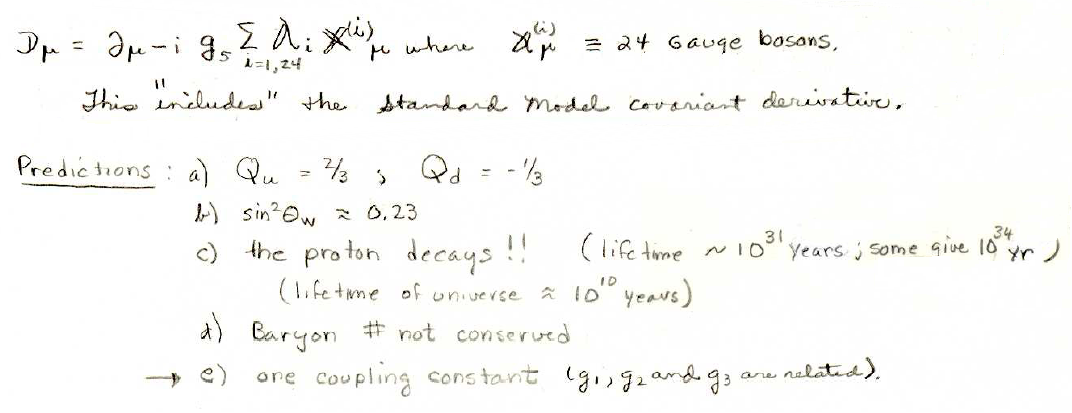 Dμ = ∂μ - i g₅ Σ λᵢ X⁽ⁱ⁾μ where X⁽ⁱ⁾μ ≡ 24 Gauge bosons.
i=1,24
This "includes" the Standard Model covariant derivative.
Predictions : a) Qu = 2/3 ; Qd = -1/3
b) sin²θw ≈ 0.23
c) the proton decays !! (lifetime ~ 10³¹ years ; some give 10³⁴ yr )
(lifetime of universe ≈ 10¹⁰ years)
d) Baryon # not conserved
→ e) one coupling constant (g₁, g₂ and g₃ are related).